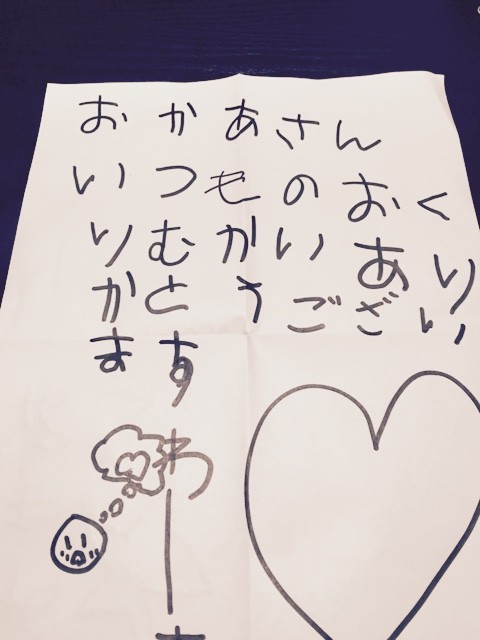 おかあさん
いつものおく
りむかいあり
かとうござい
ます